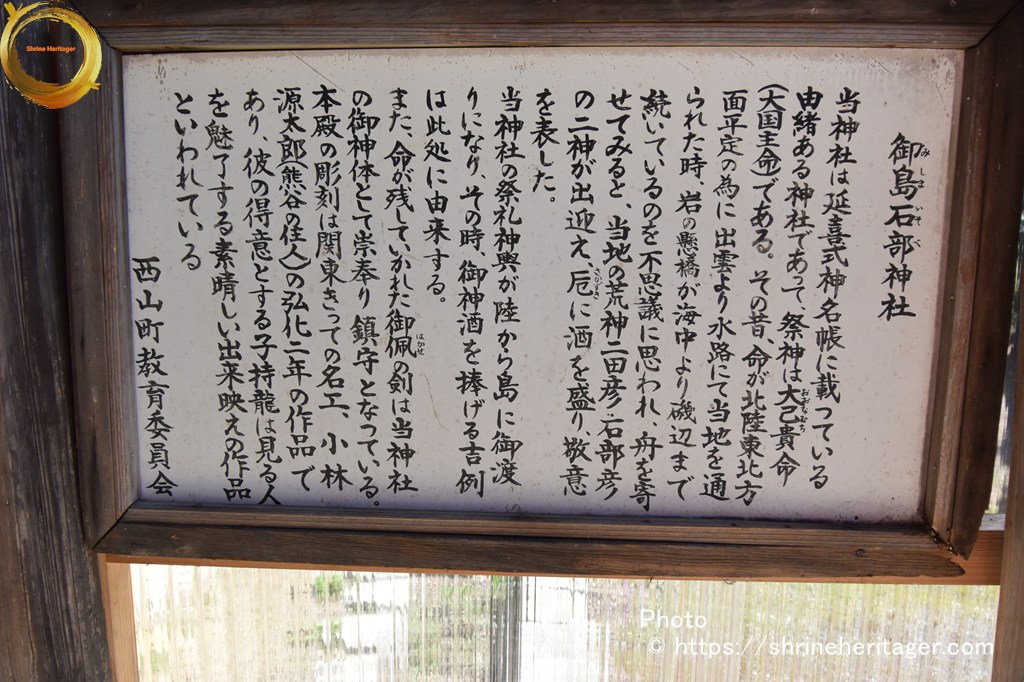 Shrine Heritager
御島石部神社
みしまいそべ
当神社は延喜式神名帳に載つている
由緒ある神社であって、祭神は大己貴命
おおなむち
(大国主命)である。その昔、命が北陸東北方
面平定の為に出雲より水路にて当地を通
られた時 岩の懸橋が海中より磯辺まで
続いているのを不思議に思われ、舟を寄
せてみると、当地の荒神二田彦・石部彦
の二神が出迎え、巵に酒を盛り、敬意
さかずき
を表した。
当神社の祭礼神輿が陸から島に御渡
りになり、その時、御神酒を捧げる吉例
は此処に由来する。
また、命が残していかれた御佩の剣は当神社
はかせ
の御神体として崇奉り鎮守となっている。
本殿の彫刻は関東きっての名工、小林
源太郎(熊谷の住人)の弘化二年の作品で
あり、彼の得意とする子持龍は見る人
を魅了する素晴しい出来映えの作品
といわれている
西山町教育委員会
Photo
© https://shrineheritager.com